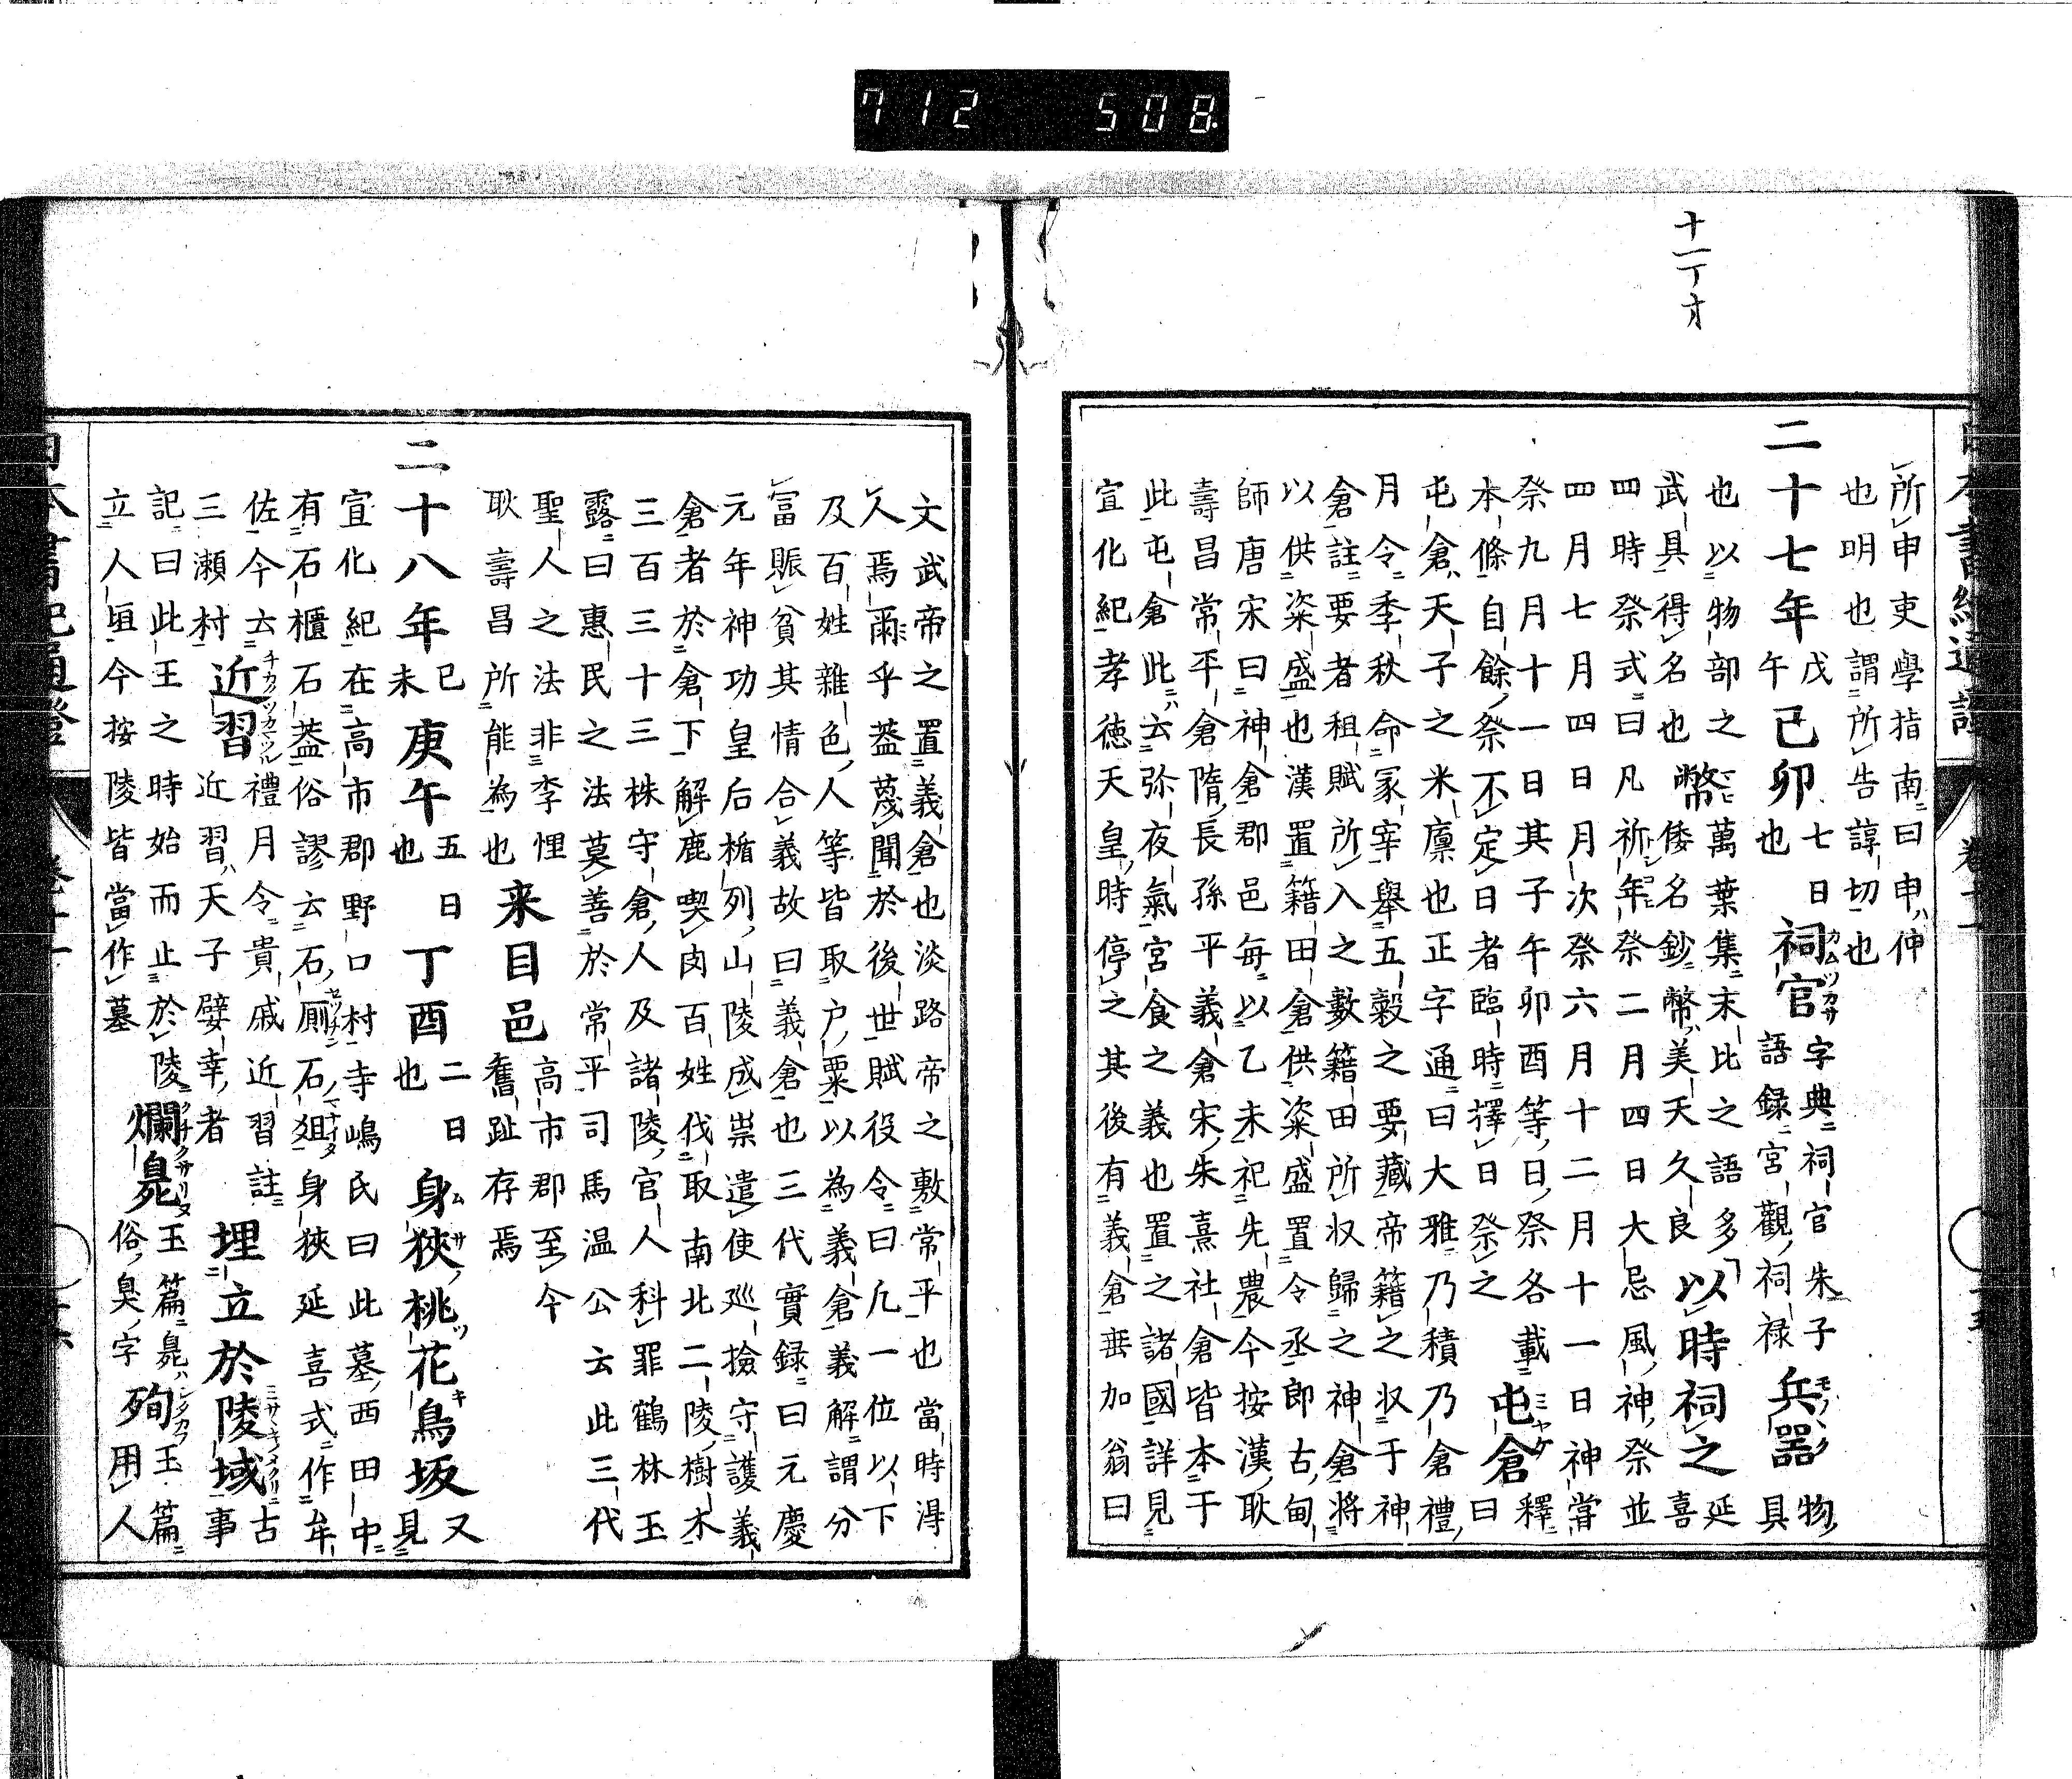 712 508
十一丁オ
所申吏學指南曰申ハ仲
也明也謂所告諄切也
二十七年戊午己卯七日也祠官カムツカサ字典祠官朱子語録宮觀祠禄兵器モノヽク物具
也以物部之萬葉集末比之語多以時祠之延喜
武具得名也幣倭名鈔幣ハ美天久良
四時祭式曰凡祈年祭二月四日大忌風神祭並
四月七月四日月次祭六月十二月十一日神嘗
祭九月十一日其子午卯酉等日祭各載
本條自餘祭不定日者臨時擇日祭之屯倉ミヤケ釋曰
屯倉ハ天子之米廩也正字通曰大雅乃積乃倉禮
月令季秋命冢宰舉五穀之要藏帝籍之収于神
倉註要者租賦所入之數籍田所収歸之神倉將
以供粢盛也漢置籍田倉供粢盛置令丞郎古甸
師唐宋曰神倉郡邑毎以乙未祀先農今按漢耿
壽昌常平倉隋長孫平義倉宋朱熹社倉皆本于
此屯倉此ニハ云弥夜氣宮食之義也置之諸國詳見
宣化紀孝徳天皇時停之其後有義倉垂加翁曰
文武帝之置義倉也淡路帝之敷常平也當時淂
人焉爾乎葢蔑聞於後世賦役令曰凡一位以下
及百姓雜色人等皆取户粟以為義倉義解謂分
冨賑貧其情合義故曰義倉也三代實録曰元慶
元年神功皇后楯列山陵成祟遣使廵撿守護義
倉者於倉下解鹿喫肉百姓伐取南北二陵樹木
三百三十三株守倉人及諸陵官人科罪鶴林玉
露曰惠民之法莫善於常平司馬温公云此三代
聖人之法非李悝
耿壽昌所能為也来目邑高市郡至今舊趾存焉
二十八年己未庚午五日也丁酉二日也身狹桃花鳥坂ムサツキ又見
宣化紀在高市郡野口村寺嶋民曰此墓西田中
有石櫃石葢俗謬云石厠セツチン石爼マナイタ身狹延喜式作牟
佐今云禮月令貴戚近習註
三瀬村近習チカクツカマツル近習ハ天子嬖幸者埋立於陵域ミサヽキノメクリニ古事
記曰此王之時始而止於陵
立人垣今按陵皆當作墓爛臰クチクサリヌ玉篇臰ハ俗臭字殉シタカフ玉篇用人